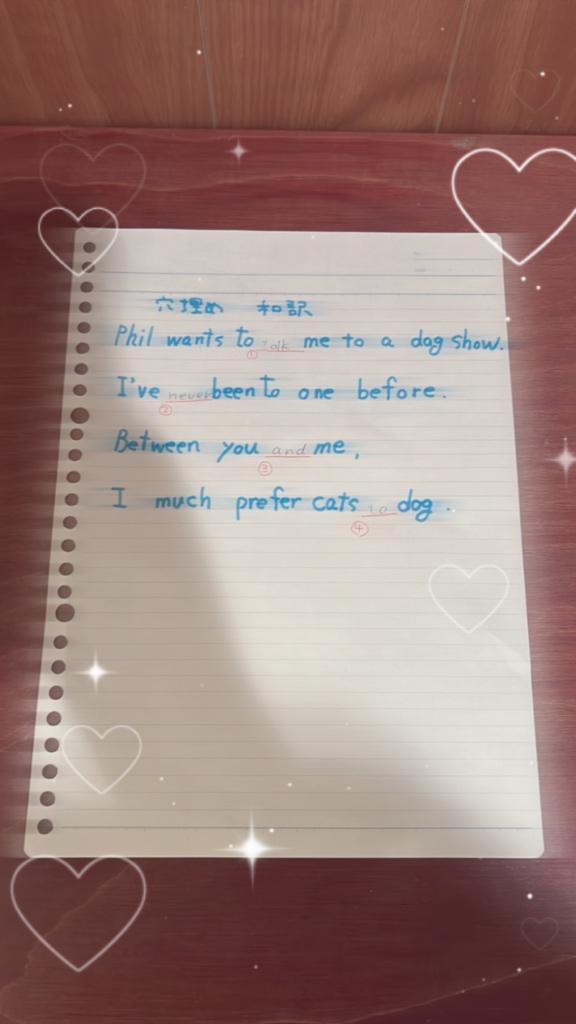 穴埋め 和訳
Phil wants to talk me to a dog show.
①
I've never been to one before.
②
Between you and me,
③
I much prefer cats to dog.
④